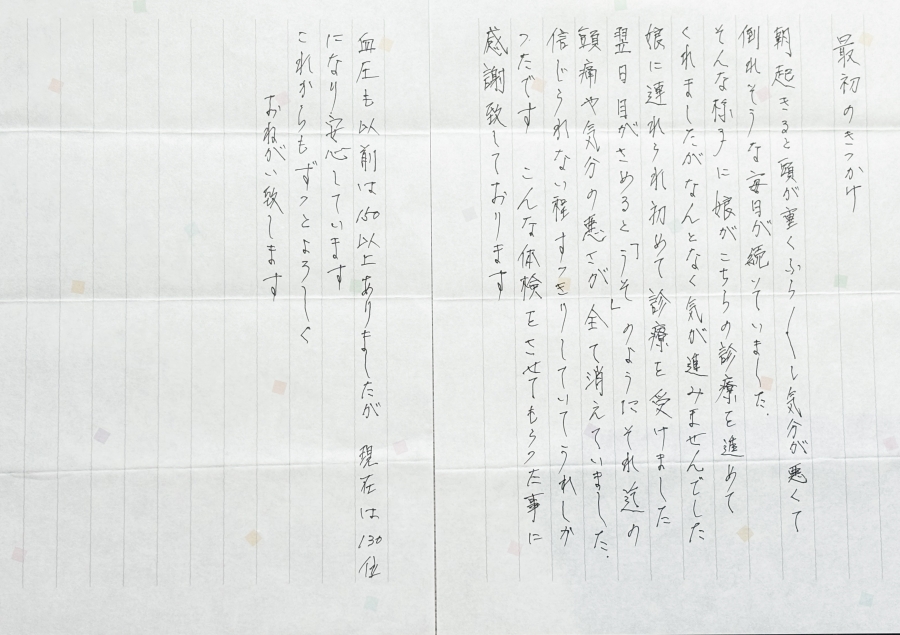 最初のきっかけ
朝起きると頭が重くふら〳〵し気分が悪くて
倒れそうな毎日が続いていました.
そんな様子に娘がこちらの診療を進めて
くれましたがなんとなく気が進みませんでした
娘に連れられ初めて診療を受けました
翌日目がさめると「うそ」のようにそれ迄の
頭痛や気分の悪さが全て消えていました.
信じられない程すっきりしていてうれしか
ったです こんな体検をさせてもらった事に
感謝致しております
血圧も以前は150以上ありましたが 現在は130位
になり安心しています
これからもずっとよろしく
おねがい致します